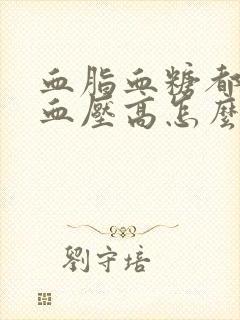 血脂血糖都
血壓高怎麼
劉守培